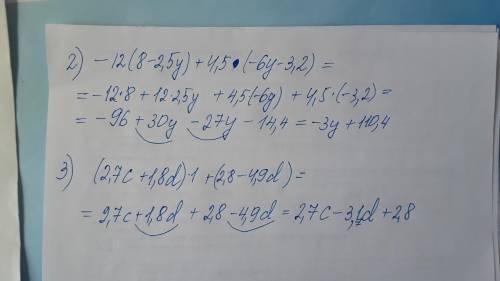 2) -12(8-2,5y)+4,5•(-6y-3,2)=
=-12·8+12·2,5y +4,5(-6y)+4,5·(-3,2)=
= -96+30y -27y -14,4=-3y+110,4
3) (2,7c+1,8d)·1+(2,8-4,9d)=
=2,7c+1,8d+2,8-4,9d=2,7c-3,1d+2,8